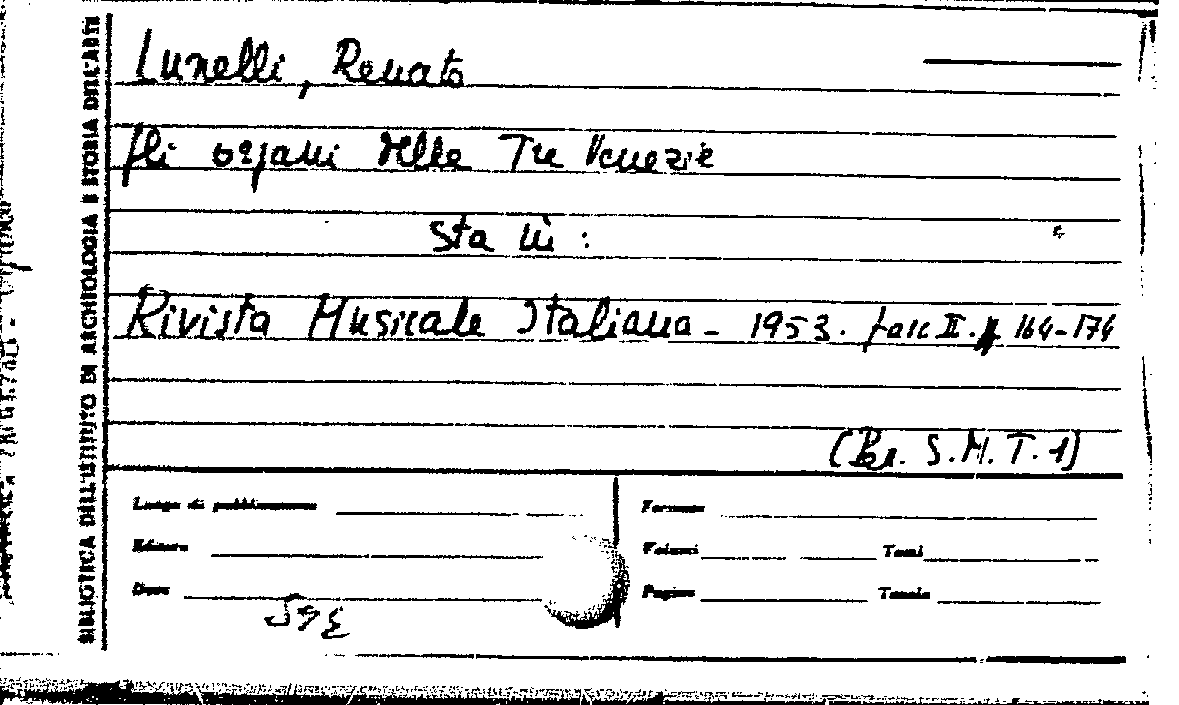 BIBLIOTECA DELL'ISTITUTO DI ARCHEOLOGIA E STORIA DELL'ARTE
Lunelli, Renato
Gli organi delle Tre Venezie
sta in:
Rivista Musicale Italiana - 1953. fasc II. p. 164-174
(Per. S.M.T.1)
Luogo di pubblicazione
Formato
Editore
Volumi Tomi
Data
Pagine Tavole